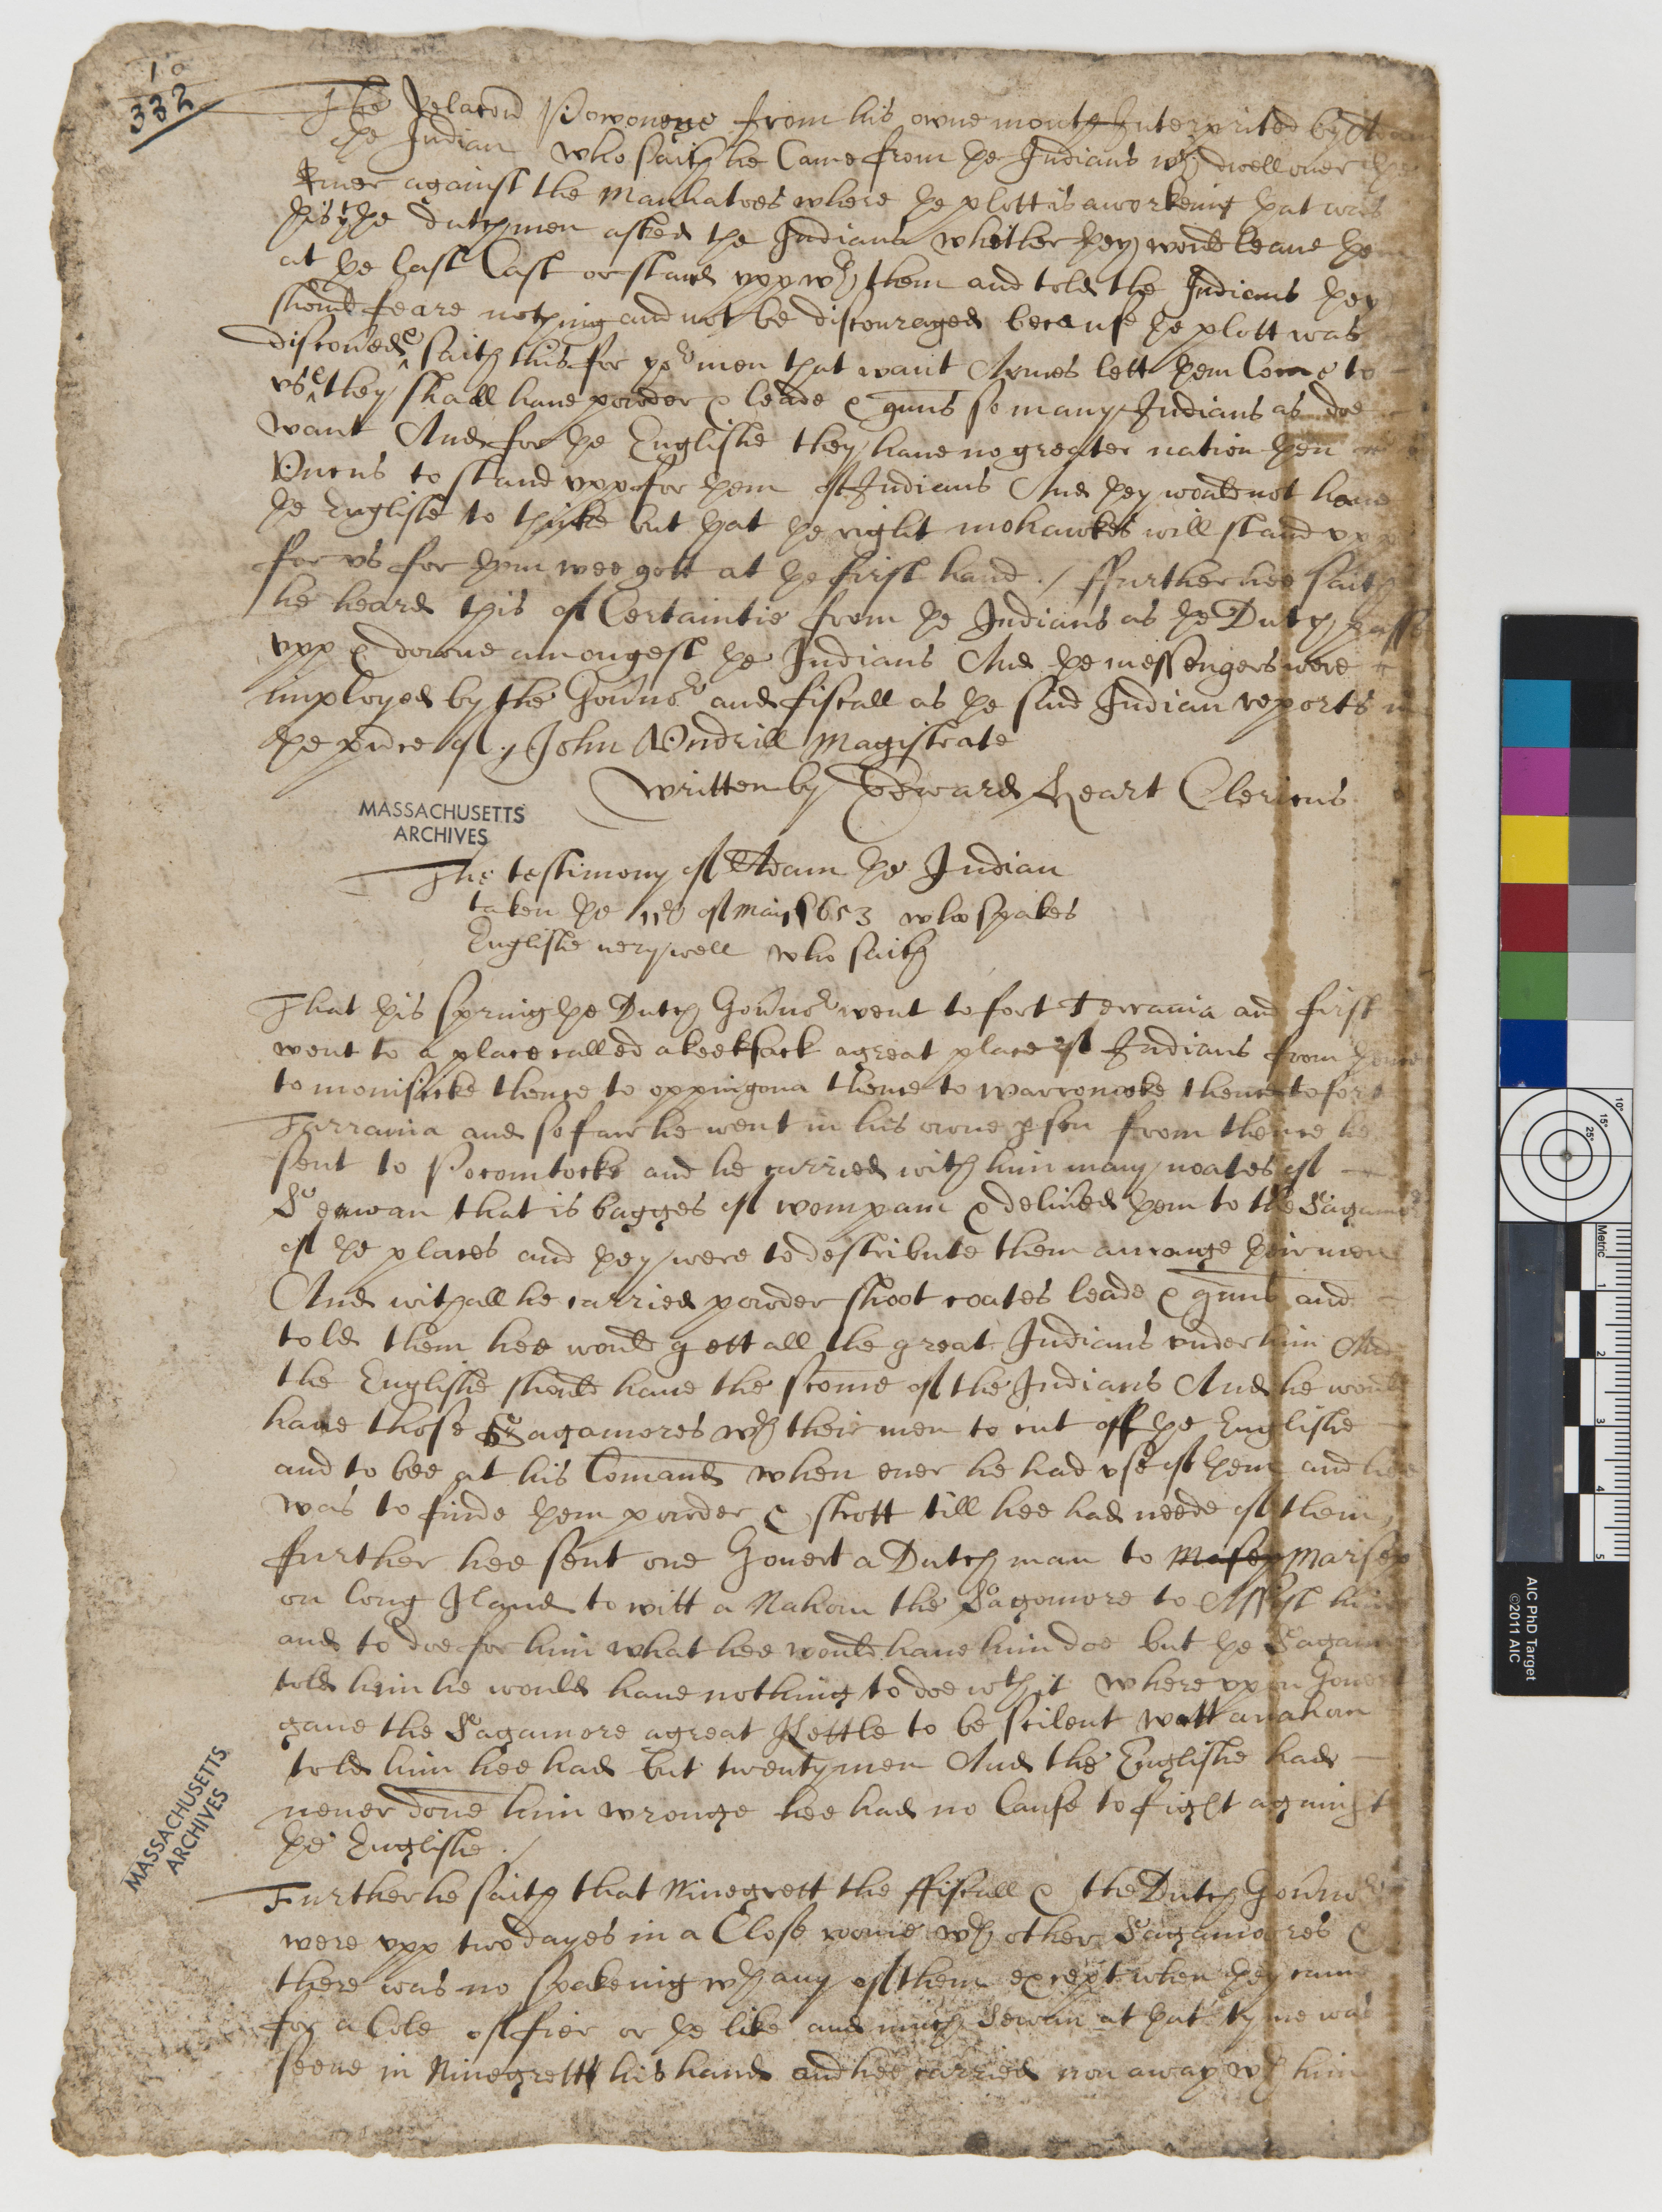 10
332
The Relacon Powoneye from his owne mouth Interprited by Adam
ye Indian who saith he Came from ye Indians wch dwell over the
River against the Manhatoes where ye plott is aworkeing yat was
this the dutchmen asked the Indians whether yey would leave yem
at ye last Cast or stand upp wth them and told the Indians yey
should feare nothing and not be discouraged because ye plott was
discoved & saith this for yor men that want Armes lett yem Come to
us & they shall have powder & leade & guns so many Indians as doe
want And for ye Englishe they have no greater nation yen
Uncus to stand upp for yem of Indians And yey would not have
ye Englishe to thinke but yat ye right mohawkes will stand upp
for us for yem wee gott at ye first hand ./ ffurther hee saith
he heard this of Certaintie from ye Indians as ye Dutch passe
upp & downe amongest ye Indians And ye messengers were
imployed by the Govnor and fiscall as ye said Indian reports in
ye prsence of John Undrill Magistrate
Written by Edward Heart Clericus
MASSACHUSETTS
ARCHIVES
The testimony of Adam ye Indian
taken ye 11th of may 1653 who speakes
Englishe very well who saith
That this spring ye Dutch Govnor went to fort Terrania and first
went to a place called akeeksack a great place of Indians from yence
to monisacke thence to oppingona thence to warronocke thence to fort
Tarrania and so farr he went in his owne pson from thence he
sent to Pocomtocke and he carried with him many noates of
Seawan that is bagges of wompam & delived yem to the Sagamors
of ye places and yey were to destribute them amonge yeir men
And withall he carried powder shoot coates leade & guns and
told them hee would gett all the great Indians under him And
the Englishe should have the scome of the Indians And he would
have those Sagamores wth their men to cut off ye Englishe
and to bee at his Comand when ever he had use of yem and hee
was to finde yem powder & shott till hee had neede of them,
further hee sent one Govert a Dutch man to Masep Marsep
on long Iland to witt a Nahom the Sagomore to Assist him
and to doe for him what hee would have him doe but ye Sagamor
told him he would have nothing to doe wth it where upon Govert
gave the Sagamore a great Kettle to be scilent wattanahom
told him hee had but twenty men And the Englishe had
never done him wronge hee had no Cause to fight against
ye Englishe ./
MASSACHUSETTS
ARCHIVES
Further he saith that Ninegrett the ffiscall & the Dutch Govnor
were upp two dayes in a Close roome wth other Sagamores &
there was no speakeing wth any of them except when yey came
for a Cole of fier or ye like and much Sewan at yat tyme was
seene in Ninegretts his hand and hee carried non away wth him